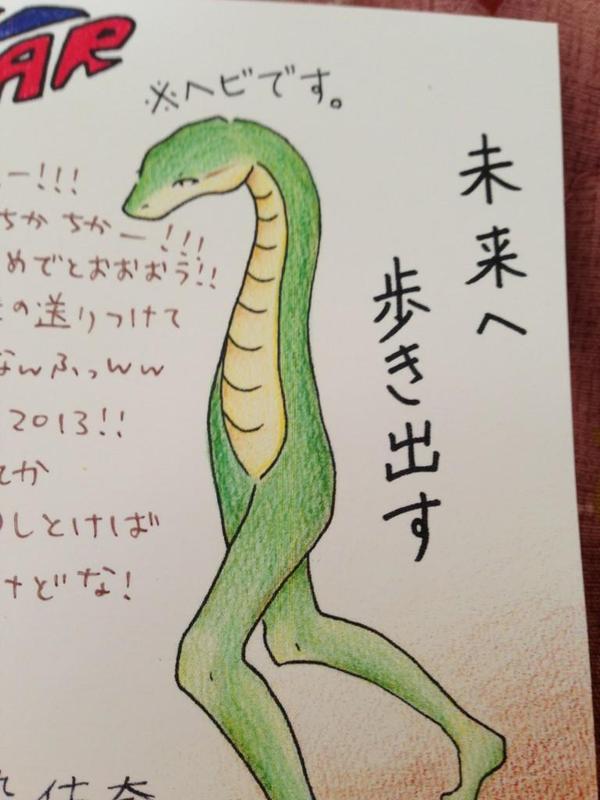 AR
※ヘビです。
未来へ
歩き出す
ー!!!
ちか ちかー!!!
めでとおおおう!!
の送りつけて
なんふっww
2013!!
てか
しとけば
けどな!
佳奈